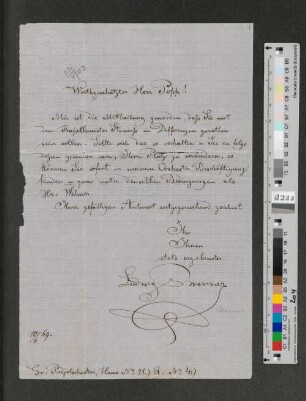 Werthgeschätzter Herr Pösch!
Mir ist die Mittheilung geworden, daß Sie mit
dem Kapellmeister Strauss in Differenzen gerathen
sein sollen. Sollte sich das so verhalten u. Sie in folge
dessen gesonnen sein, Ihren Platz zu verändern, so
können Sie sofort in meinem Orchester Beschäftigung
finden u. zwar unter denselben Bedingungen als
Hr.
Ihrer gefälligen Antwort entgegensehend zeichnet
Ihr
Ihnen
stets ergebender
Ludwig
10/69.
Haus No 21.